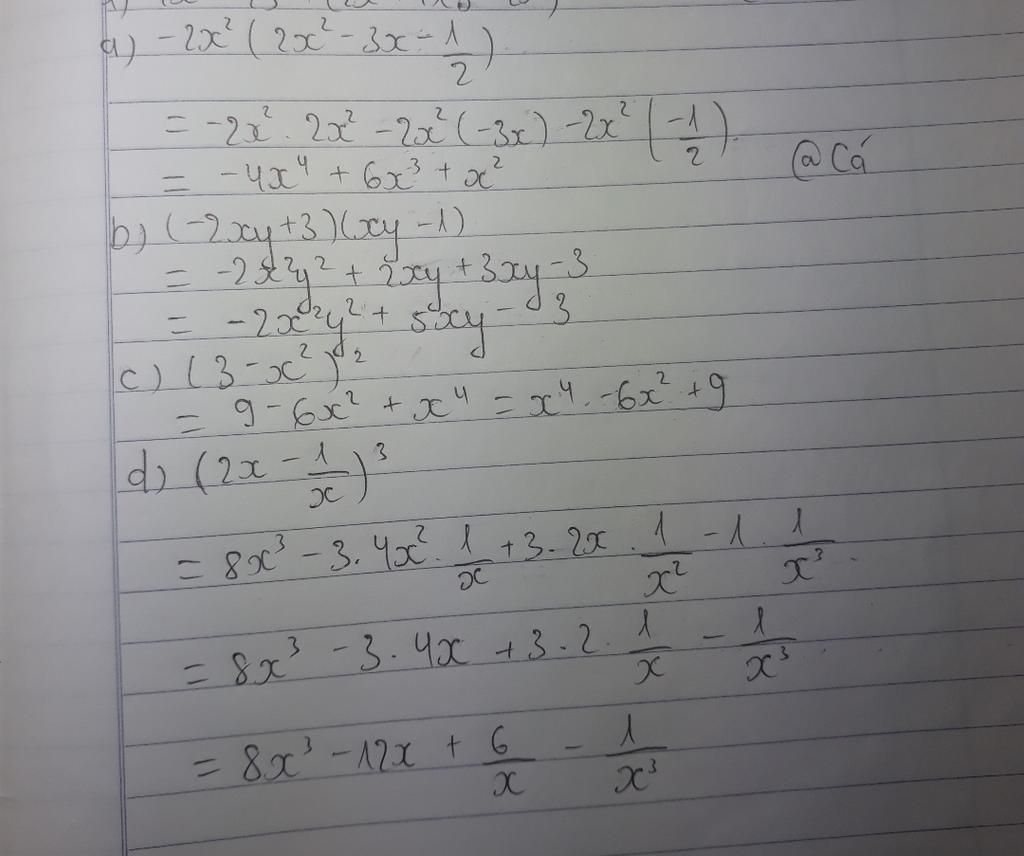 a) -2x² (2x² - 3x - 1/2)
= -2x² . 2x² - 2x² (-3x) - 2x² (-1/2).
= -4x⁴ + 6x³ + x²
@Cá
b) (-2xy+3)(xy-1)
= -2x²y² + 2xy + 3xy - 3
= -2x²y² + 5xy - 3
c) (3 - x²)²
= 9 - 6x² + x⁴ = x⁴ - 6x² + 9
d) (2x - 1/x)³
= 8x³ - 3.4x² . 1/x + 3.2x . 1/x² - 1 . 1/x³
= 8x³ - 3.4x + 3.2. 1/x - 1/x³
= 8x³ - 12x + 6/x - 1/x³